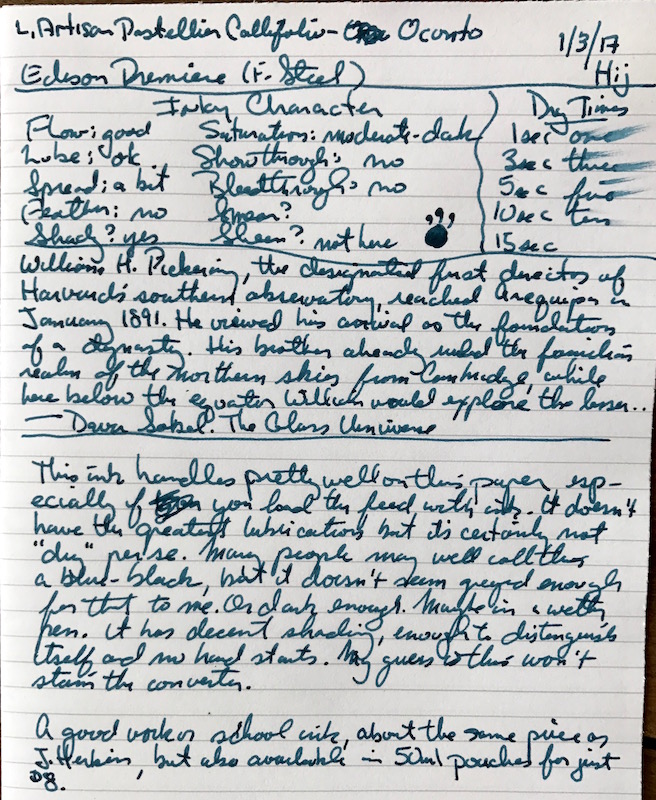 L'Artisan Pastellier Callifolio - Oconto
1/3/17
Edison Premiere (F. Steel)
Hij
Inky Character
Dry Times
Flow: good Saturation: moderate-dark
1 sec one
Lube: ok Showthrough: no
3 sec three
Spread: a bit Bleedthrough: no
5 sec five
Feather: no Smear?
10 sec ten
Shady? yes Sheen? not here
15 sec
William H. Pickering, the designated first director of
Harvard's southern observatory, reached Arequipa in
January 1891. He viewed his arrival as the foundation
of a dynasty. His brother already ruled the familiar
realm of the northern skies from Cambridge, while
here below the equator William would explore the lesser..
— Dava Sobel. The Glass Universe
This ink handles pretty well on this paper, esp-
ecially if you load the feed with ink. It doesn't
have the greatest lubrication but it's certainly not
"dry" per se. Many people may well call this
a blue-black, but it doesn't seem greyed enough
for that to me. Or dark enough. Maybe in a wetter
pen. It has decent shading, enough to distinguish
itself and no hard starts. My guess is this won't
stain the converter.
A good work or school ink, about the same price as
J. Herbin, but also available in 50ml pouches for just
$8.